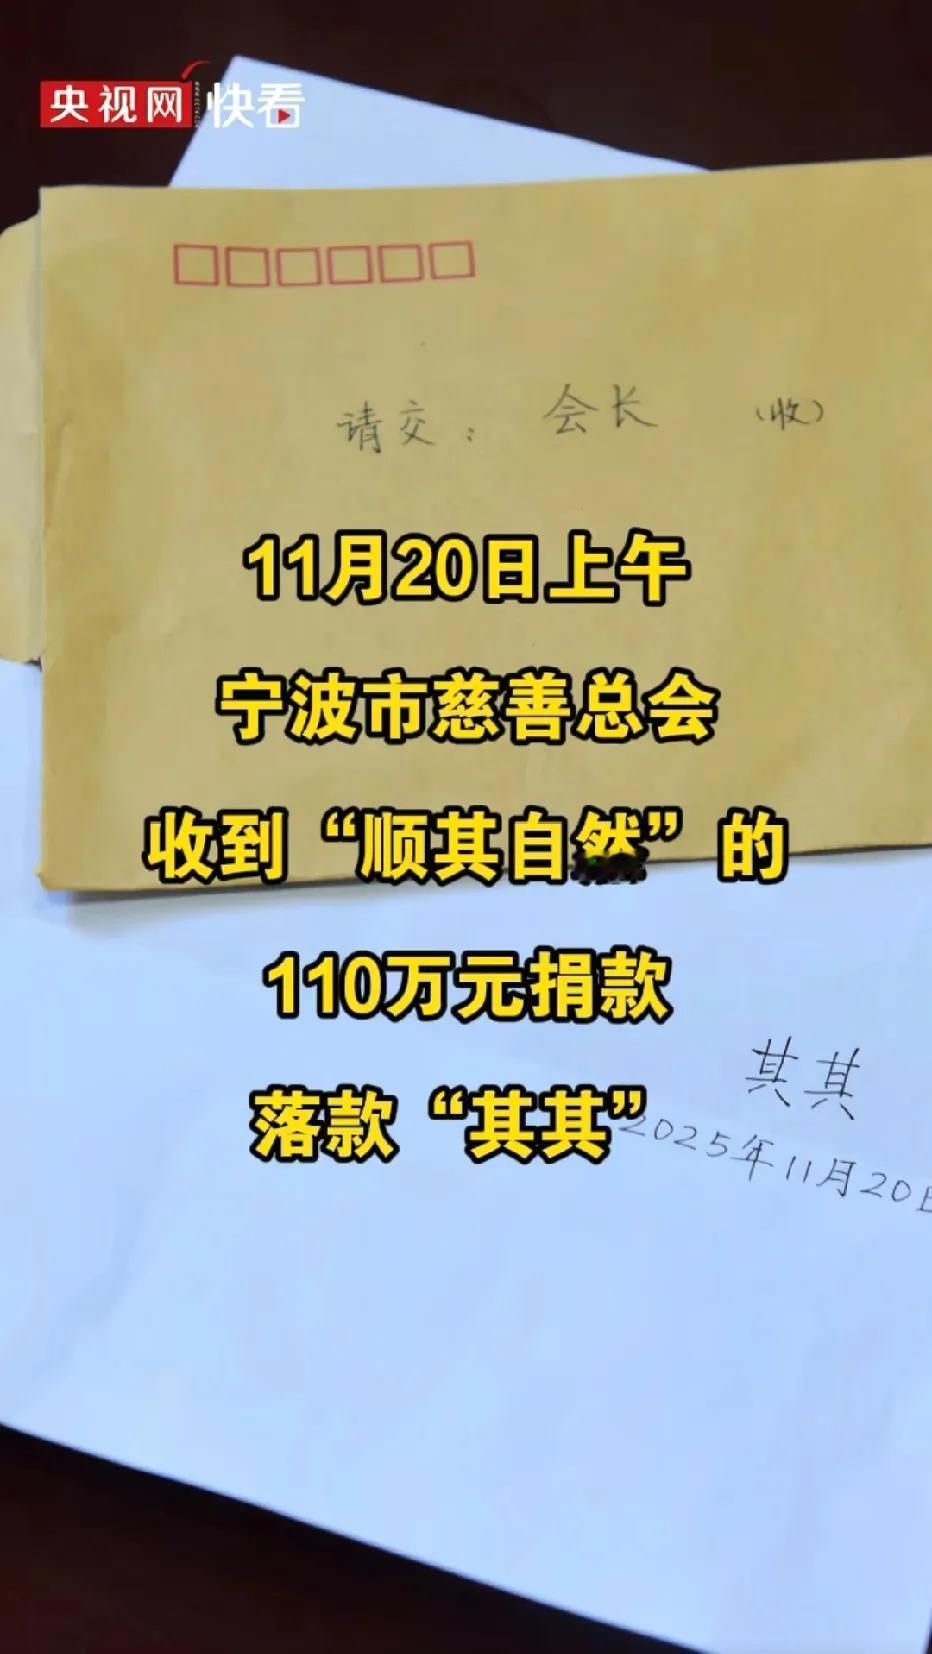 央视网 快看
请交：会长（收）
11月20日上午
宁波市慈善总会
收到“顺其自然”的
110万元捐款
落款“其其”
其其
2025年11月20日